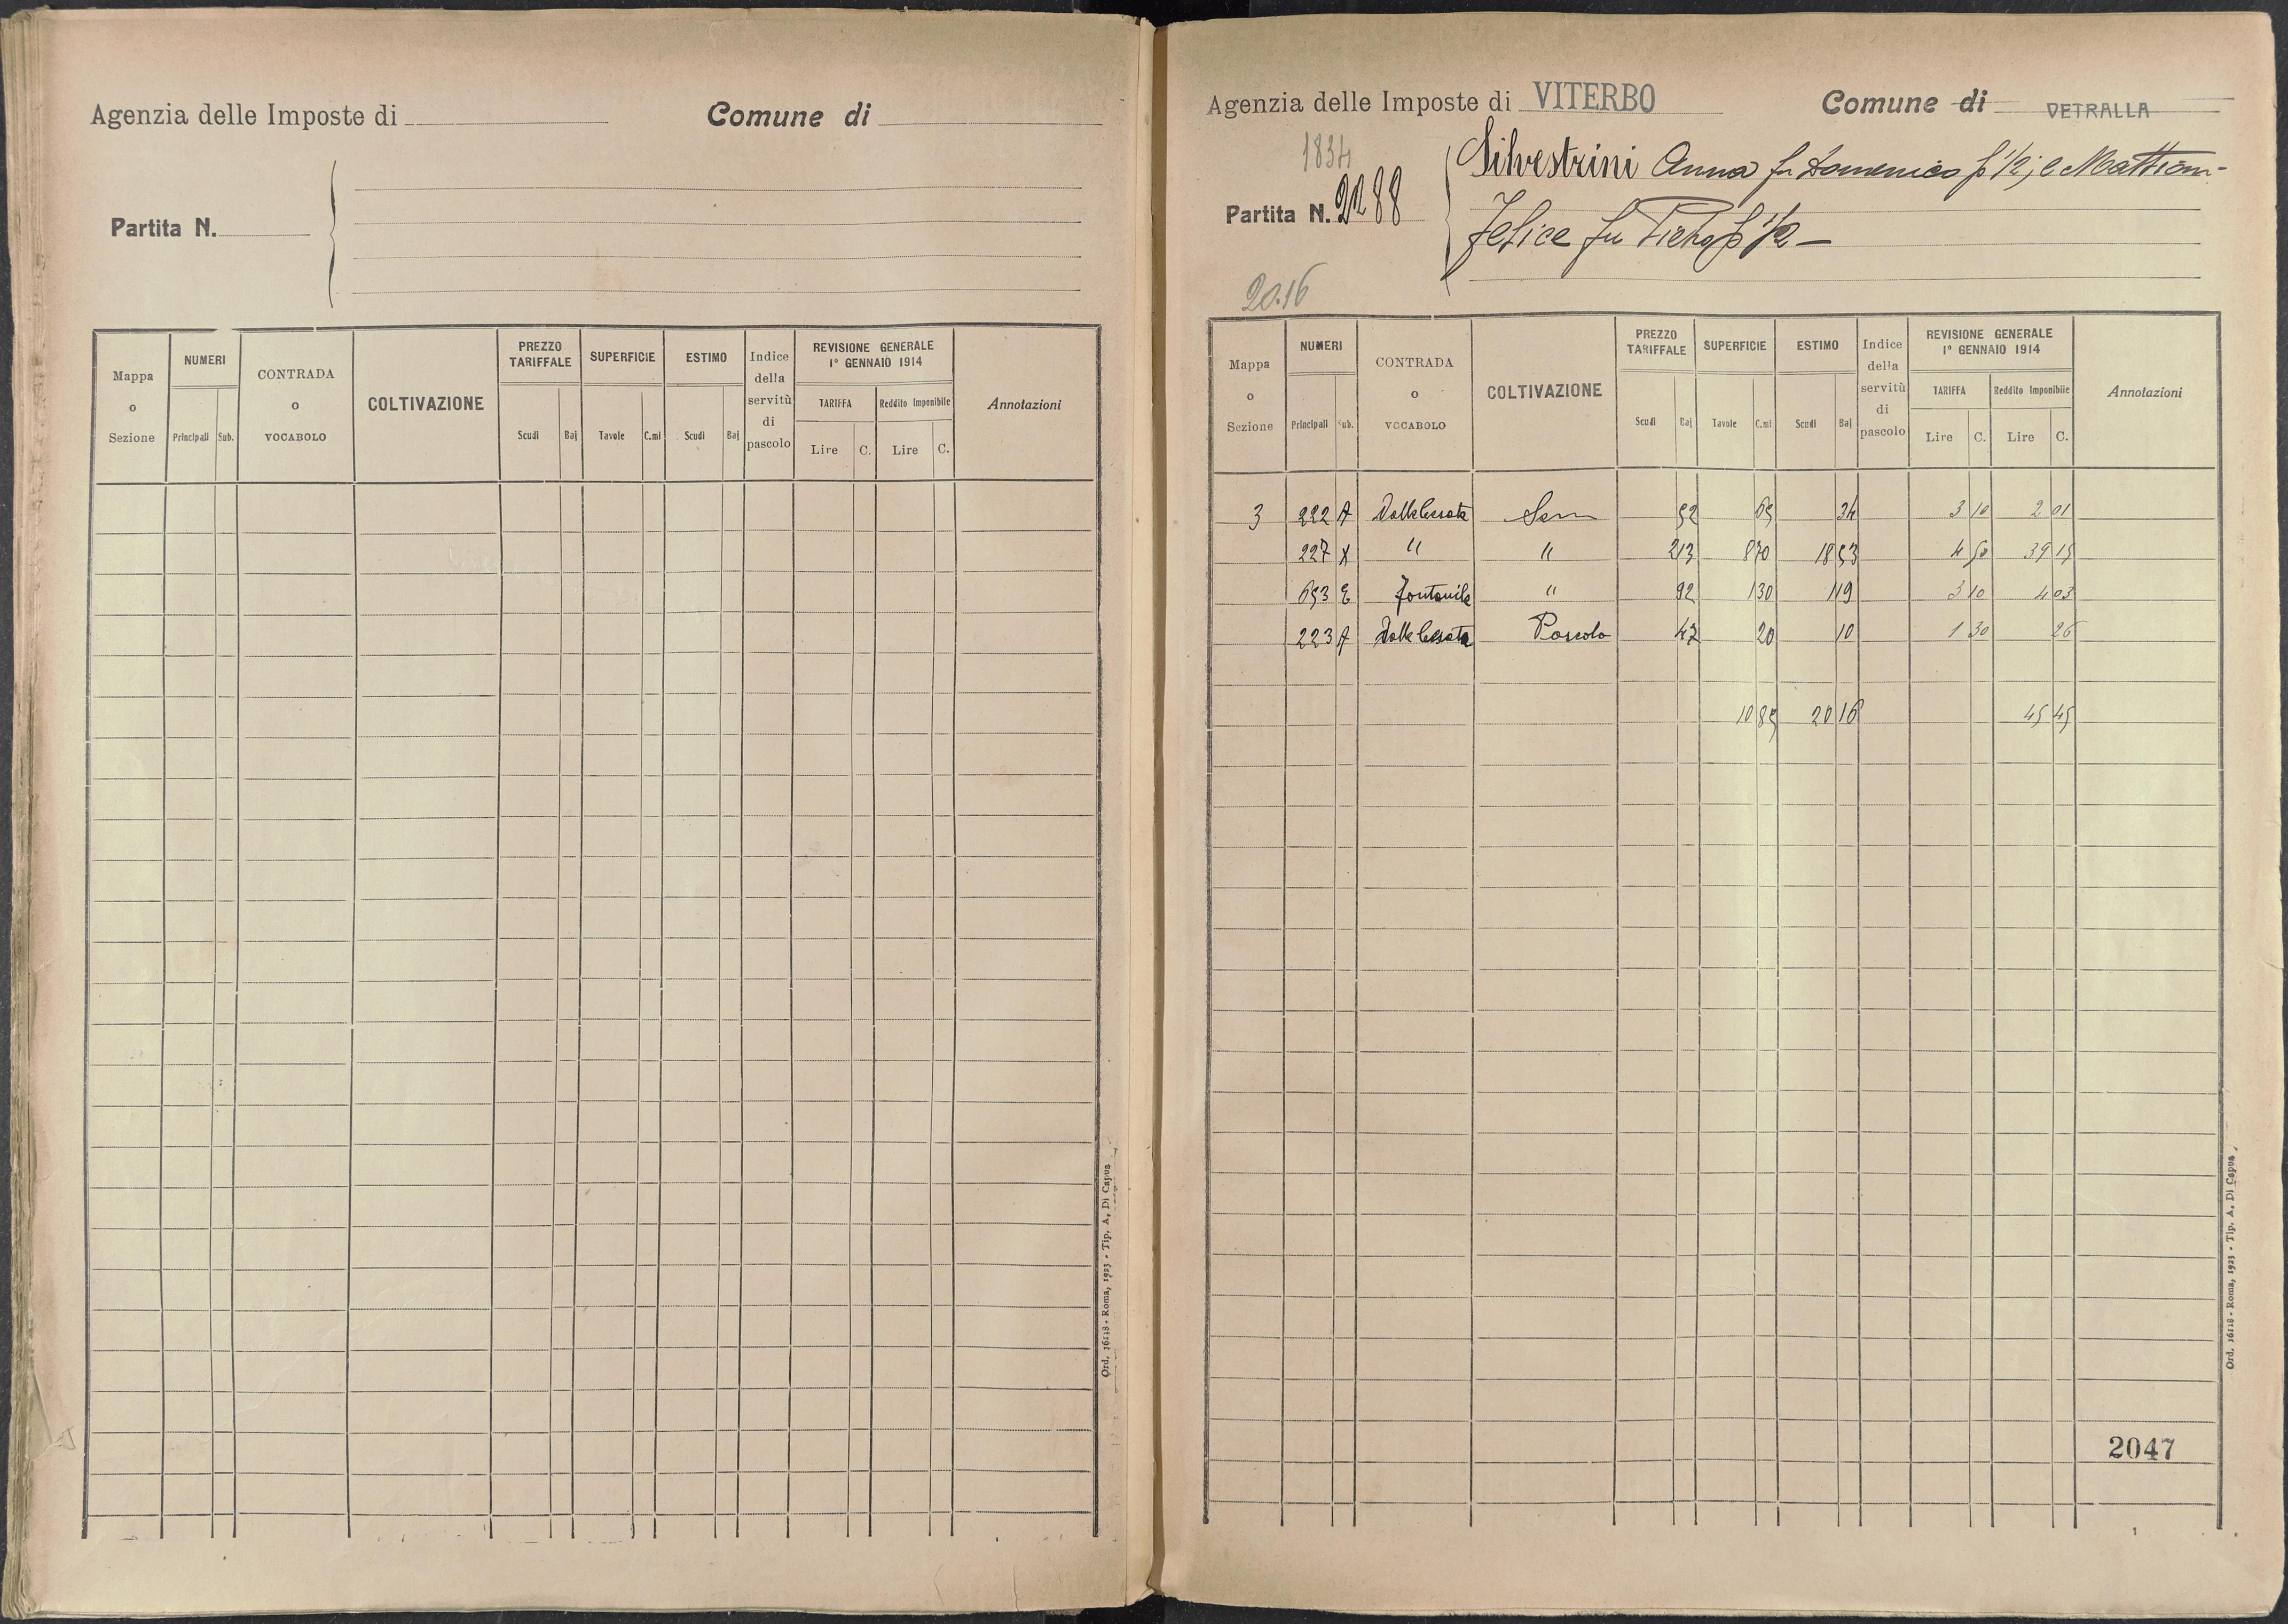 Agenzia delle Imposte di Comune di
Partita N.
Mappa o Sezione NUMERI CONTRADA o VOCABOLO COLTIVAZIONE PREZZO TARIFFALE SUPERFICIE ESTIMO Indice della servitù di pascolo REVISIONE GENERALE 1° GENNAIO 1914 Annotazioni
TARIFFA Reddito Imponibile
Principali Sub. Scudi Baj Tavole C.mi Scudi Baj Lire C. Lire C.
Ord. 16118 - Roma, 1923 - Tip. A. Di Capua
Agenzia delle Imposte di VITERBO Comune di VETRALLA
1834
Silvestrini Anna fu Domenico p 1/2; e Mattioni-
Partita N. 2288
Felice fu Pietro p 1/2 —
20.16
Mappa o Sezione NUMERI CONTRADA o VOCABOLO COLTIVAZIONE PREZZO TARIFFALE SUPERFICIE ESTIMO Indice della servitù di pascolo REVISIONE GENERALE 1° GENNAIO 1914 Annotazioni
TARIFFA Reddito Imponibile
Principali Sub. Scudi Baj Tavole C.mi Scudi Baj Lire C. Lire C.
3 222 A Valle Cesata Sem 52 65 34 3 10 2 01
227 X " " 2 13 8 70 18 53 4 50 39 15
653 E Fontanile " 92 1 30 1 19 3 10 4 03
223 A Valle Cesata Pascolo 47 20 10 1 30 26
10 85 20 16 45 45
2047
Ord. 16118 - Roma, 1923 - Tip. A. Di Capua